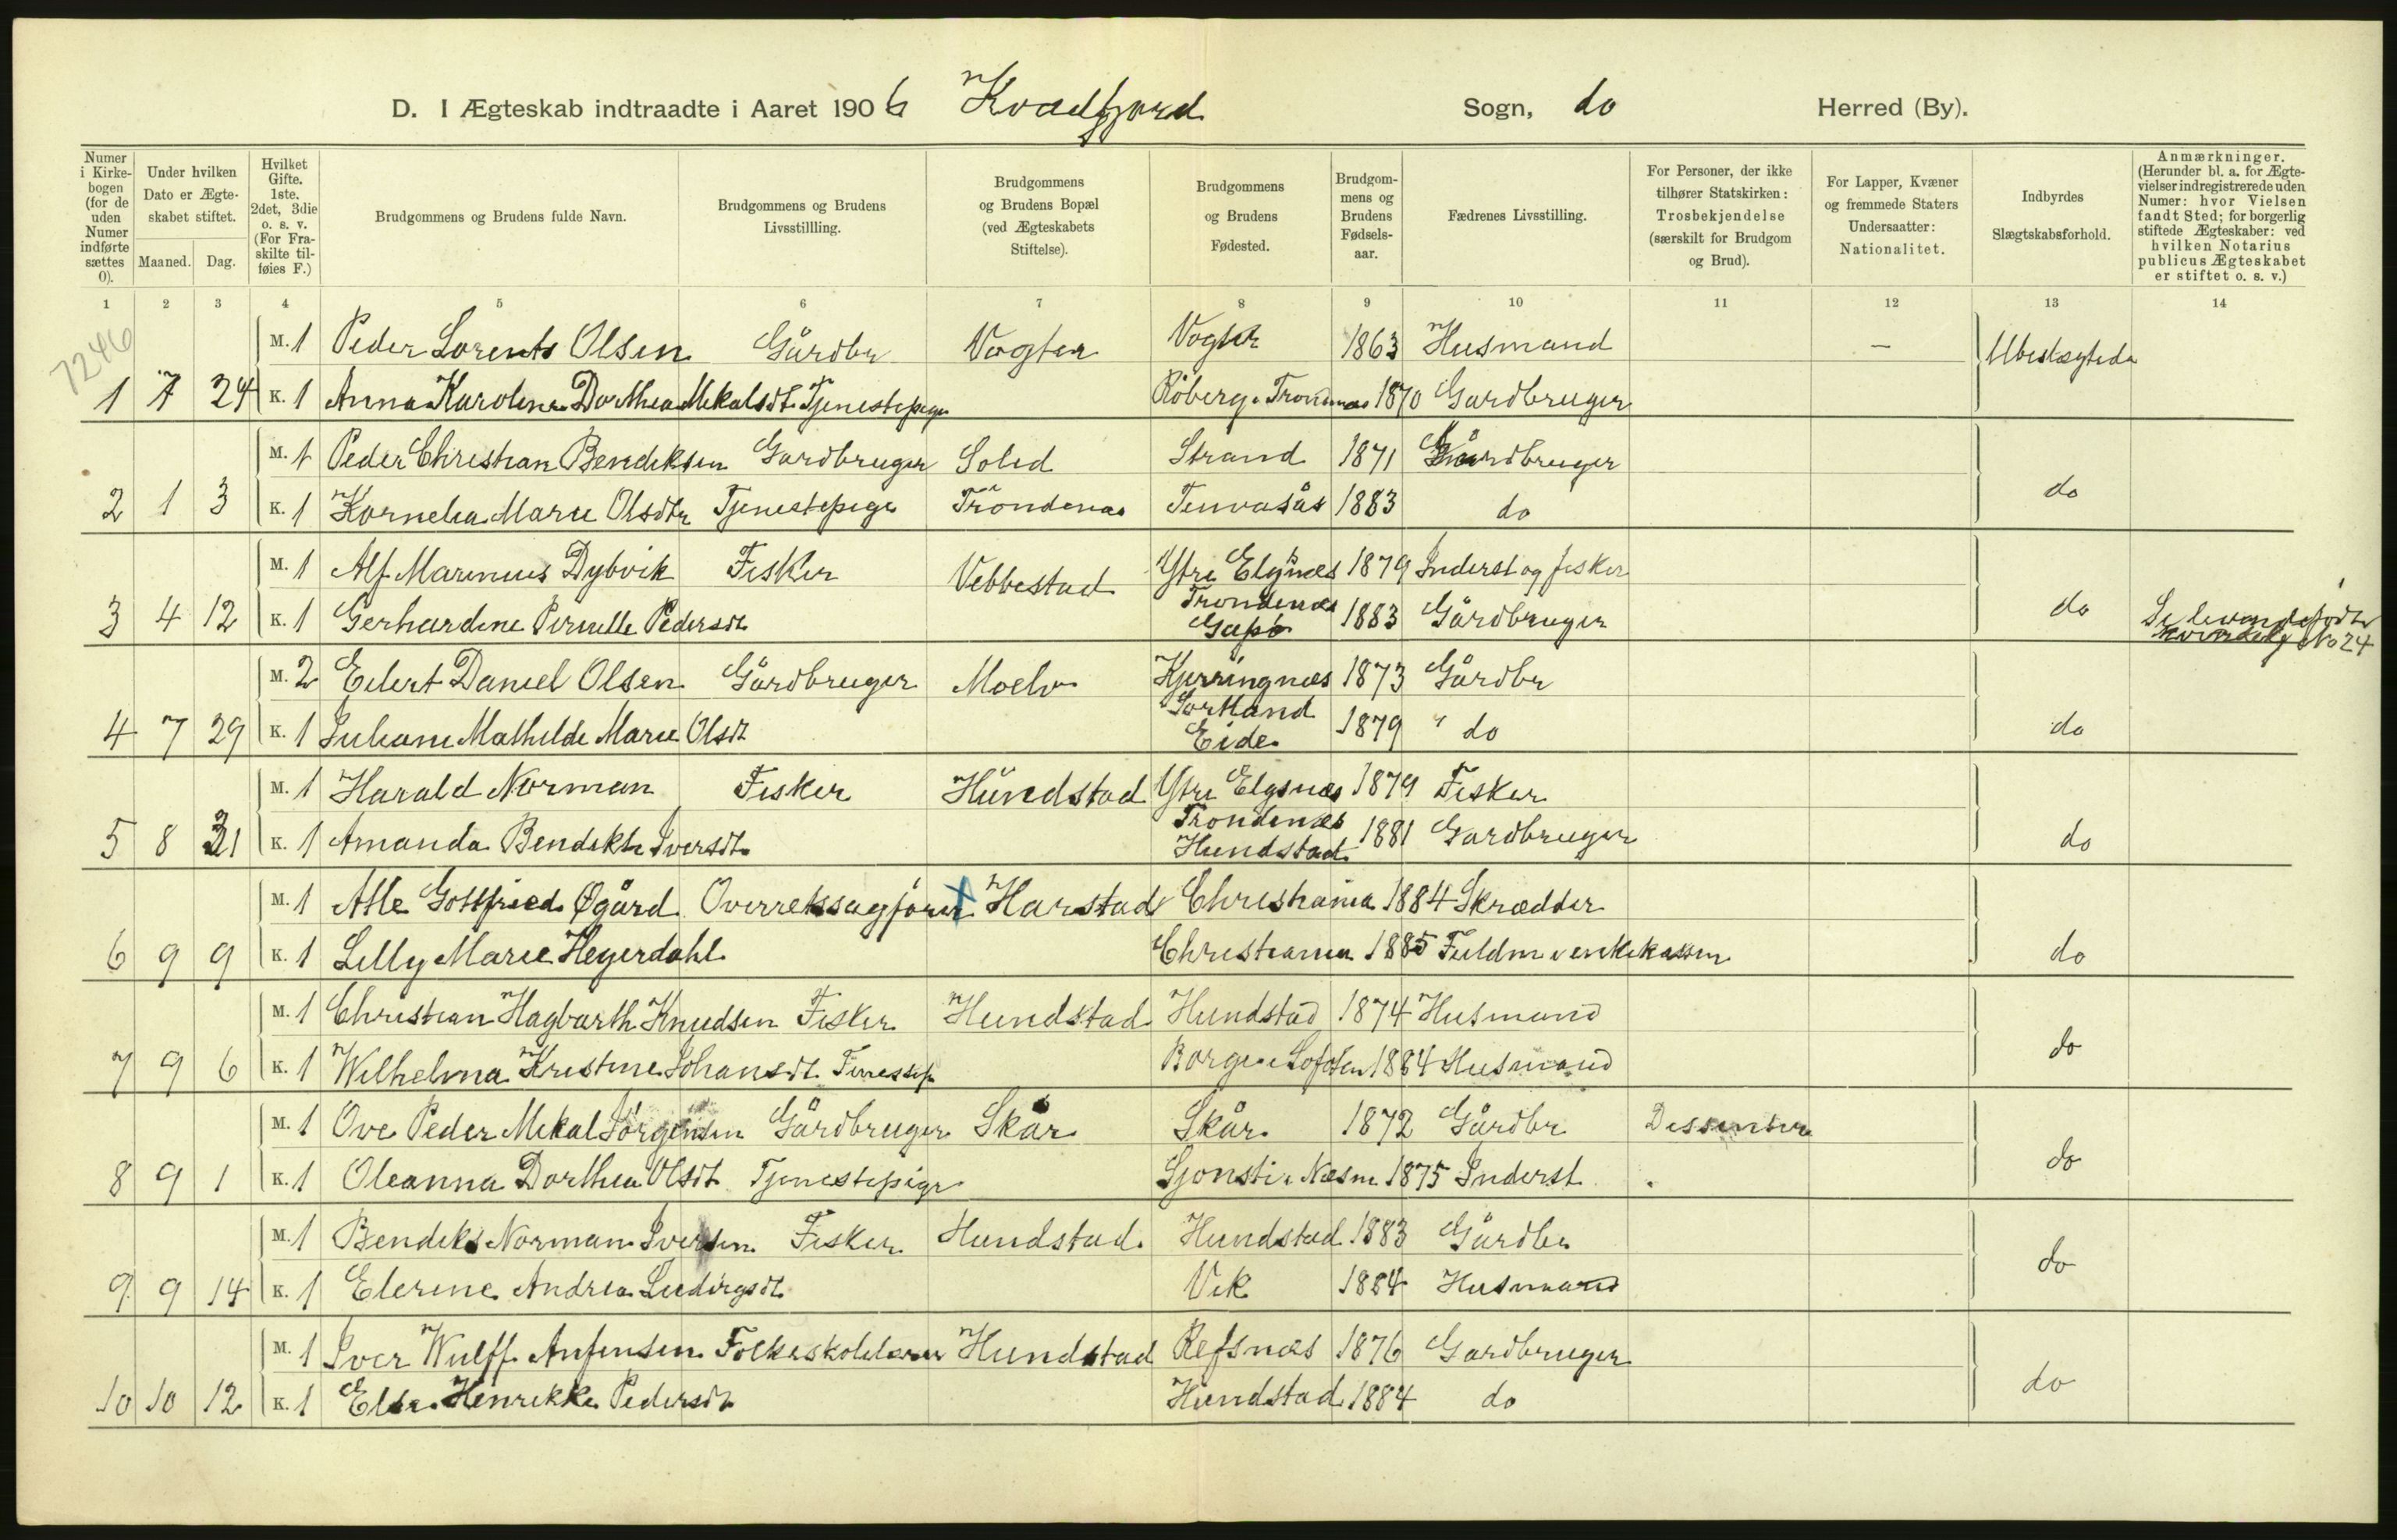 D. I Ægteskab indtraadte i Aaret 1906 Kvædfjord Sogn, do Herred (By).
Numer i Kirkebogen (for de uden Numer indførte sættes 0).
Under hvilken Dato er Ægteskabet stiftet.
Maaned. Dag.
Hvilket Gifte. 1ste. 2det, 3die o. s. v. (For Fraskilte tilføies F.)
Brudgommens og Brudens fulde Navn.
Brudgommens og Brudens Livsstillling.
Brudgommens og Brudens Bopæl (ved Ægteskabets Stiftelse).
Brudgommens og Brudens Fødested.
Brudgommens og Brudens Fødselsaar.
Fædrenes Livsstilling.
For Personer, der ikke tilhører Statskirken: Trosbekjendelse (særskilt for Brudgom og Brud).
For Lapper, Kvæner og fremmede Staters Undersaatter: Nationalitet.
Indbyrdes Slægtskabsforhold.
Anmærkninger. (Herunder bl. a. for Ægtevielser indregistrerede uden Numer: hvor Vielsen fandt Sted; for borgerlig stiftede Ægteskaber: ved hvilken Notarius publicus Ægteskabet er stiftet o. s. v.)
1 2 3 4 5 6 7 8 9 10 11 12 13 14
7246
M. 1 Peder Lorents Olsen Gårdbr Vogter Vogter 1863 Husmand — Ubeslægtede
1 7 24 K. 1 Anna Karoline Dorthea Mikalsdt. Tjenestepige Röberg. Trondenæs 1870 Gardbruger
M. 1 Peder Christian Bendiksen Gardbruger Solid Strand 1871 Gårdbruger
2 1 3 K. 1 Kornelia Marie Olsdtr Tjenestepige Tröndenæs Tenvasås 1883 do do
M. 1 Alf Marinius Dybvik Fisker Vebbestad Ytre Elgsnæs Trondenæs 1879 Inderst og fisker
3 4 12 K. 1 Gerhardine Pernelle Pedersdt Gapø 1883 Gårdbruger do Se levendefödte No 24
M. 2 Edert Daniel Olsen Gårdbruger Moelv Kjerringnæs Sortland 1873 Gårdbr
4 7 29 K. 1 Juliane Mathilde Marie Olsdt Eide 1879 " do do
M. 1 Harald Norman Fisker Hundstad Ytre Elgsnæs Trondenæs 1879 Fisker
5 8 31 K. 1 Amanda Bendikte Iversdt. Hundstad 1881 Gardbruger do
M. 1 Atle Gottfried Øgård Overretssagförer X Harstad Christiania 1884 Skrædder
6 9 9 K. 1 Lilly Marie Heyerdahl Christiania 1885 Fuldm i enkekassen do
M. 1 Christian Hagbarth Knudsen Fisker Hundstad Hundstad 1874 Husmand
7 9 6 K. 1 Wilhelmina Kristine Johansdt. Borge i Lofoten 1884 Husmand do
M. 1 Ove Peder Mikal Jörgensen Gårdbruger Skår Skår 1872 Gårdbr Dissenter
8 9 1 K. 1 Oleanna Dorthea Olsdt Tjenestepige Sjonsti i Næsne 1875 Inderst . do
M. 1 Bendiks Norman Iversen Fisker Hundstad Hundstad 1883 Gårdbr
9. 9 14 K. 1 Elerine Andrea Ludvigsdt Vik 1884 Husmand do
M. 1 Iver Wulff Anfinsen Folkeskolelærer Hundstad Refsnæs 1876 Gardbruger
10 10 12 K. 1 Elise Henrikke Pedersdt Hundstad 1884 do do